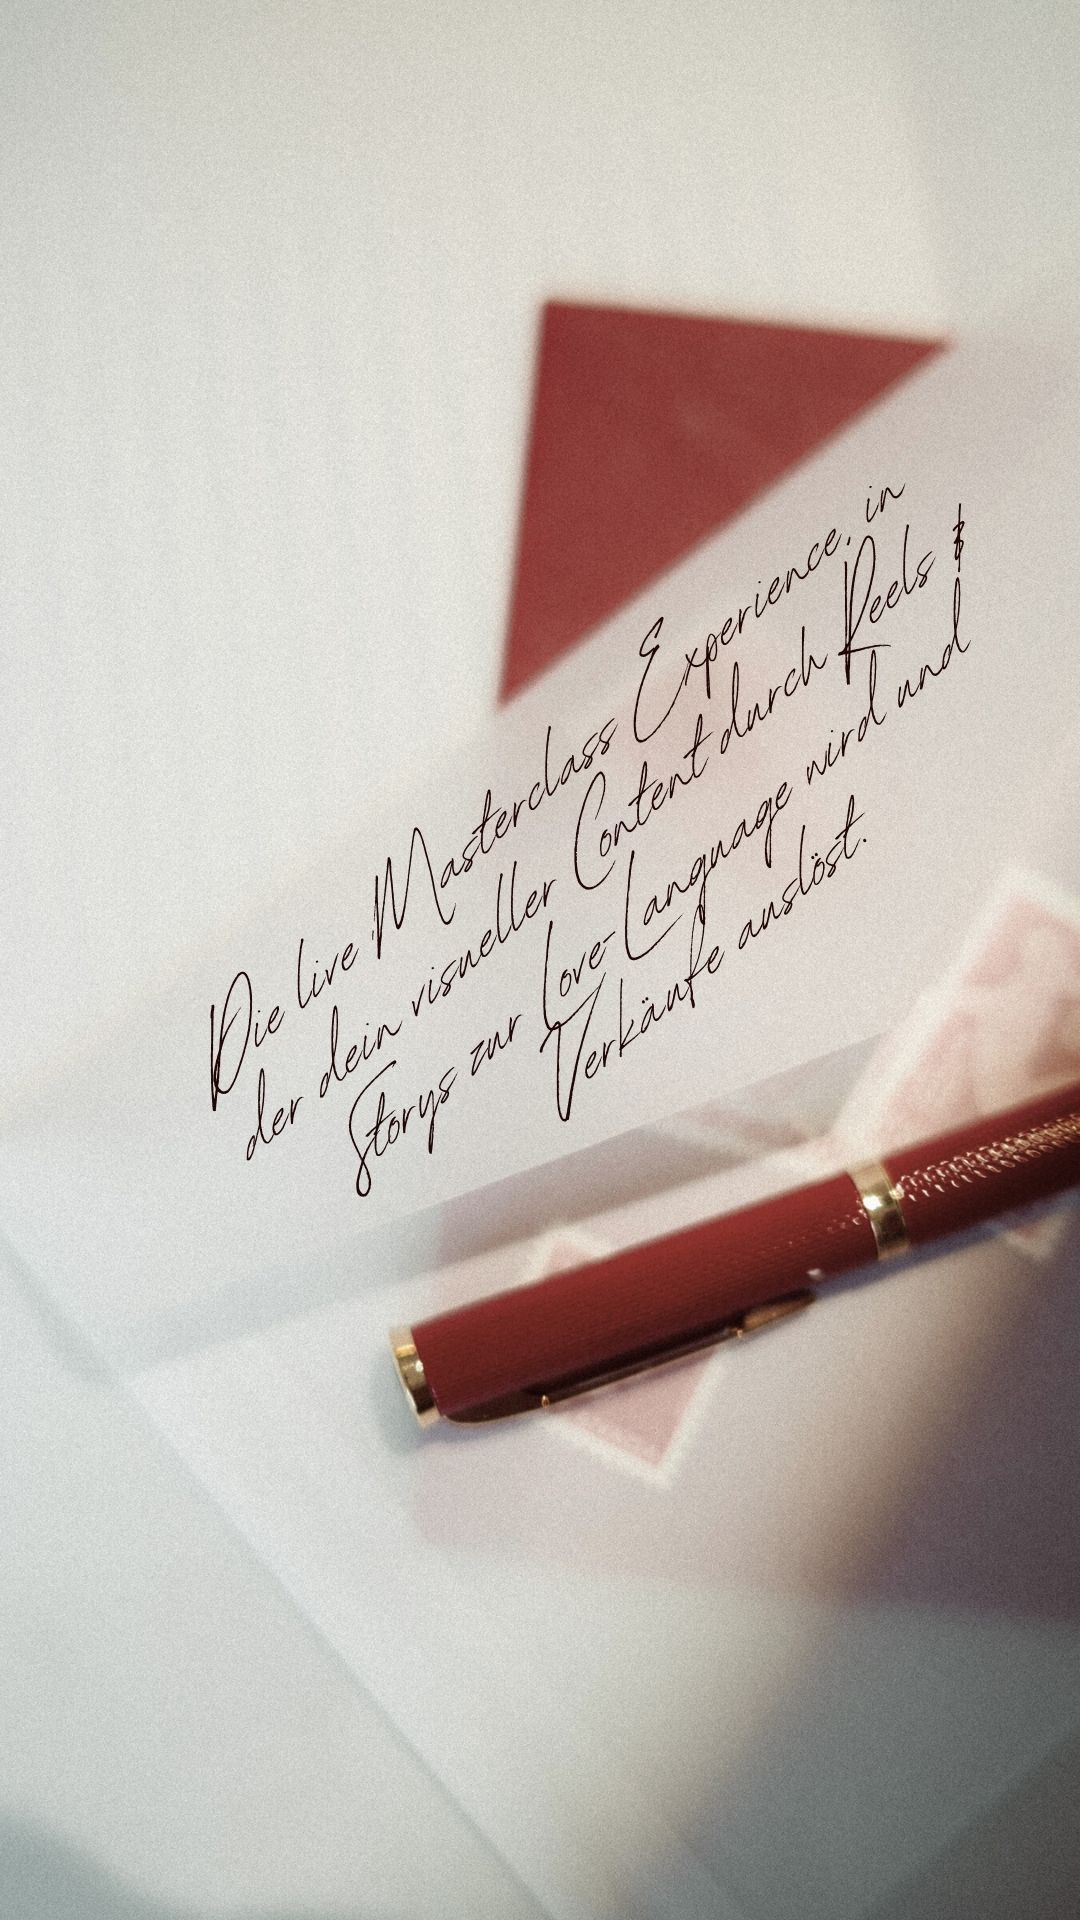 Die live Masterclass Experience, in
der dein visueller Content durch Reels &
Storys zur Love-Language wird und
Verkäufe auslöst.